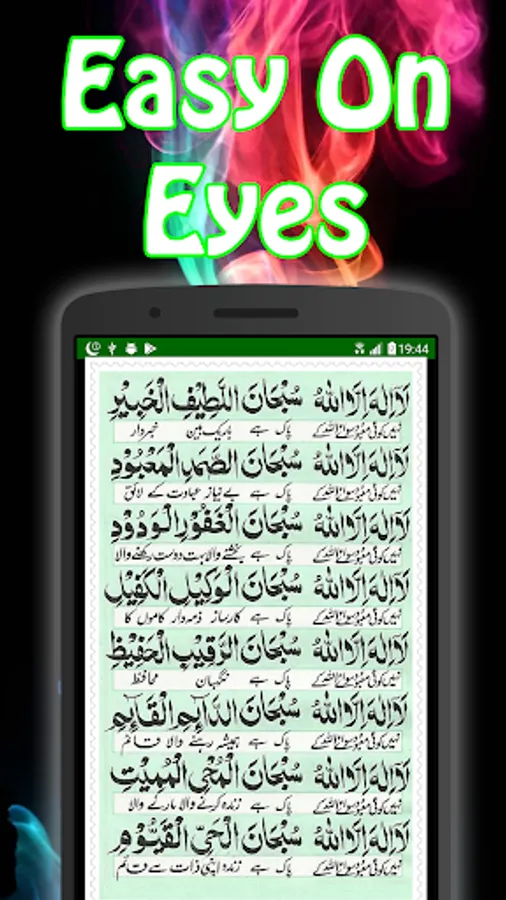 Easy On
Eyes
19:44
لَآ اِلٰهَ اِلَّا اللّٰهُ سُبْحَانَ اللَّطِيْفِ الْخَبِيْرِ
نہیں کوئی معبود سوائے اللہ کے پاک ہے باریک بین خبردار
لَآ اِلٰهَ اِلَّا اللّٰهُ سُبْحَانَ الصَّمَدِ الْمَعْبُوْدِ
نہیں کوئی معبود سوائے اللہ کے پاک ہے بے نیاز عبادت کے لائق
لَآ اِلٰهَ اِلَّا اللّٰهُ سُبْحَانَ الْغَفُوْرِ الْوَدُوْدِ
نہیں کوئی معبود سوائے اللہ کے پاک ہے بخشنے والا بہت دوست رکھنے والا
لَآ اِلٰهَ اِلَّا اللّٰهُ سُبْحَانَ الْوَكِيْلِ الْكَفِيْلِ
نہیں کوئی معبود سوائے اللہ کے پاک ہے کارساز ذمہ دار کاموں کا
لَآ اِلٰهَ اِلَّا اللّٰهُ سُبْحَانَ الرَّقِيْبِ الْحَفِيْظِ
نہیں کوئی معبود سوائے اللہ کے پاک ہے نگہبان محافظ
لَآ اِلٰهَ اِلَّا اللّٰهُ سُبْحَانَ الدَّآئِمِ الْقَآئِمِ
نہیں کوئی معبود سوائے اللہ کے پاک ہے ہمیشہ رہنے والا قائم
لَآ اِلٰهَ اِلَّا اللّٰهُ سُبْحَانَ الْمُحْيِ الْمُمِيْتِ
نہیں کوئی معبود سوائے اللہ کے پاک ہے زندہ کرنے والا مارنے والا
لَآ اِلٰهَ اِلَّا اللّٰهُ سُبْحَانَ الْحَيِّ الْقَيُّوْمِ
نہیں کوئی معبود سوائے اللہ کے پاک ہے زندہ اپنی ذات سے قائم